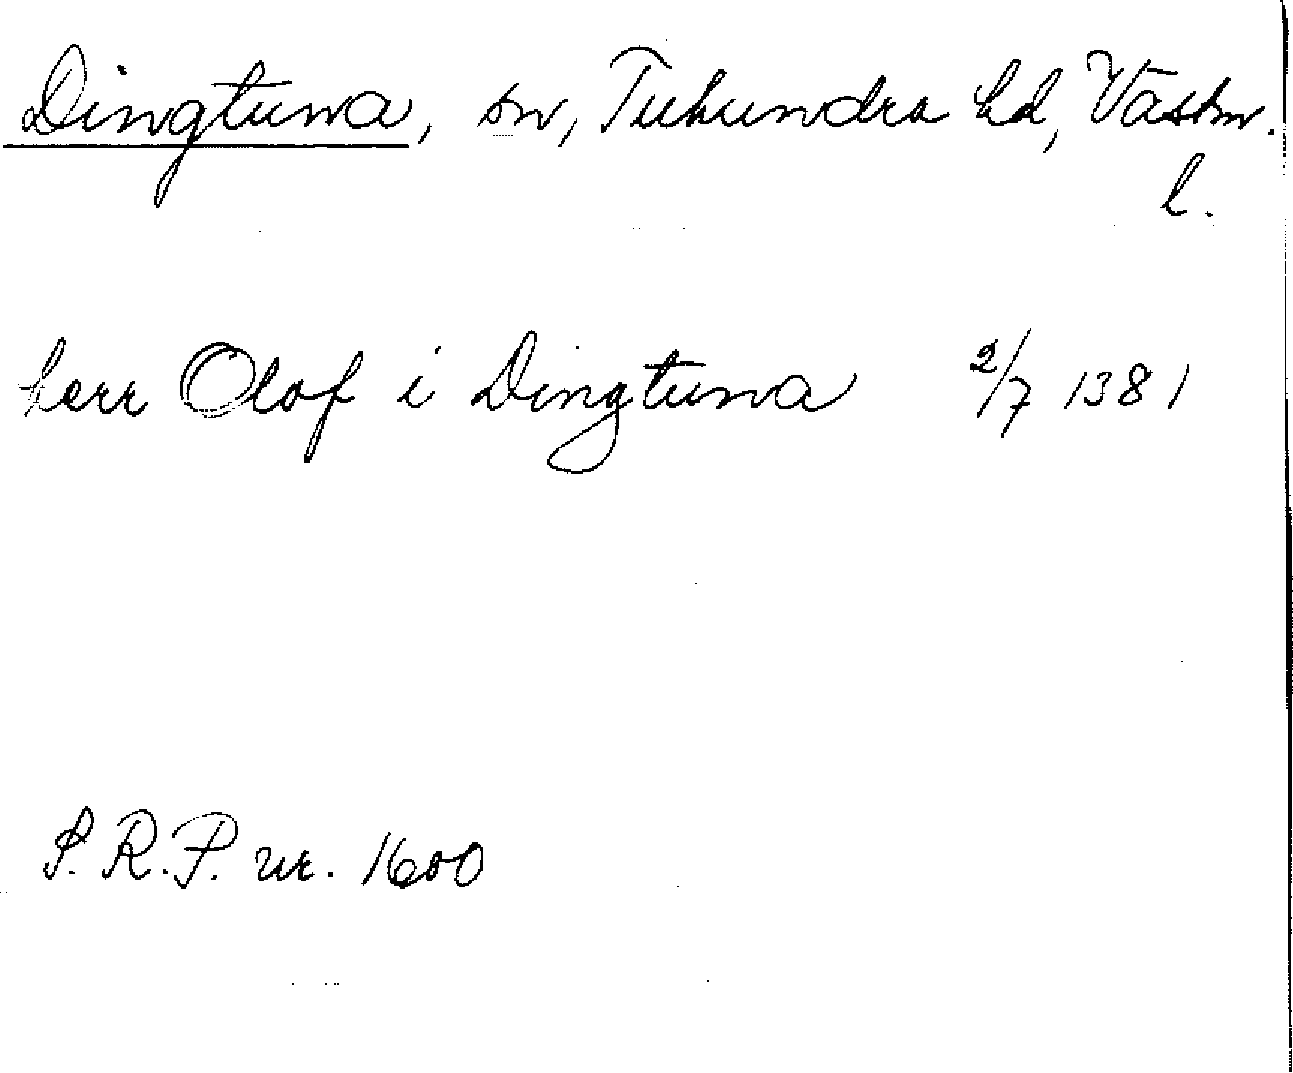 Dingtuna, sn, Tuhundra hd, Västm.
l.
herr Olof i Dingtuna 2/7 1381
S.R.P. nr. 1600